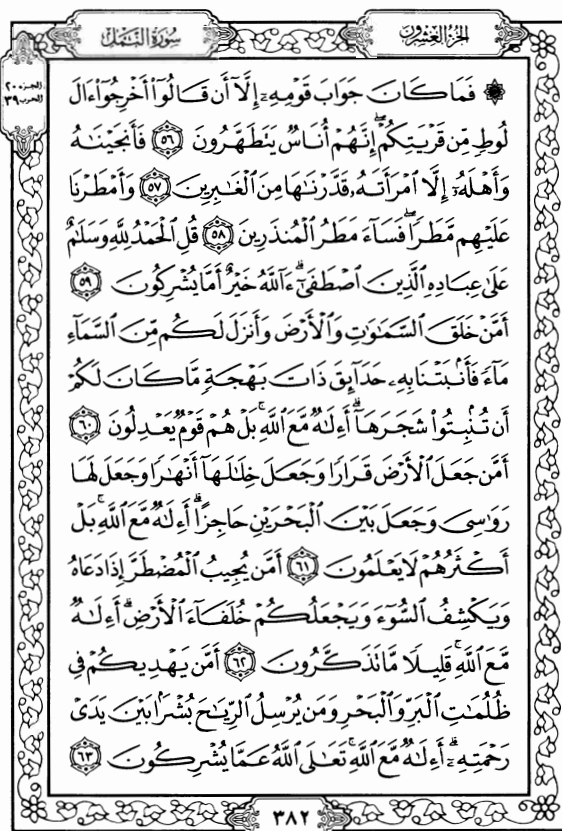 الجزء العشرون
سورة النمل
الجزء ٢٠
الحزب ٣٩
۞ فَمَا كَانَ جَوَابَ قَوْمِهِۦٓ إِلَّآ أَن قَالُوٓا۟ أَخْرِجُوٓا۟ ءَالَ
لُوطٍ مِّن قَرْيَتِكُمْ ۖ إِنَّهُمْ أُنَاسٌ يَتَطَهَّرُونَ ٥٦ فَأَنجَيْنَـٰهُ
وَأَهْلَهُۥٓ إِلَّا ٱمْرَأَتَهُۥ قَدَّرْنَـٰهَا مِنَ ٱلْغَـٰبِرِينَ ٥٧ وَأَمْطَرْنَا
عَلَيْهِم مَّطَرًا ۖ فَسَآءَ مَطَرُ ٱلْمُنذَرِينَ ٥٨ قُلِ ٱلْحَمْدُ لِلَّهِ وَسَلَـٰمٌ
عَلَىٰ عِبَادِهِ ٱلَّذِينَ ٱصْطَفَىٰٓ ۗ ءَآللَّهُ خَيْرٌ أَمَّا يُشْرِكُونَ ٥٩
أَمَّنْ خَلَقَ ٱلسَّمَـٰوَٰتِ وَٱلْأَرْضَ وَأَنزَلَ لَكُم مِّنَ ٱلسَّمَآءِ
مَآءً فَأَنۢبَتْنَا بِهِۦ حَدَآئِقَ ذَاتَ بَهْجَةٍ مَّا كَانَ لَكُمْ
أَن تُنۢبِتُوا۟ شَجَرَهَآ ۗ أَءِلَـٰهٌ مَّعَ ٱللَّهِ ۚ بَلْ هُمْ قَوْمٌ يَعْدِلُونَ ٦٠
أَمَّن جَعَلَ ٱلْأَرْضَ قَرَارًا وَجَعَلَ خِلَـٰلَهَآ أَنْهَـٰرًا وَجَعَلَ لَهَا
رَوَٰسِىَ وَجَعَلَ بَيْنَ ٱلْبَحْرَيْنِ حَاجِزًا ۗ أَءِلَـٰهٌ مَّعَ ٱللَّهِ ۚ بَلْ
أَكْثَرُهُمْ لَا يَعْلَمُونَ ٦١ أَمَّن يُجِيبُ ٱلْمُضْطَرَّ إِذَا دَعَاهُ
وَيَكْشِفُ ٱلسُّوٓءَ وَيَجْعَلُكُمْ خُلَفَآءَ ٱلْأَرْضِ ۗ أَءِلَـٰهٌ
مَّعَ ٱللَّهِ ۚ قَلِيلًا مَّا تَذَكَّرُونَ ٦٢ أَمَّن يَهْدِيكُمْ فِى
ظُلُمَـٰتِ ٱلْبَرِّ وَٱلْبَحْرِ وَمَن يُرْسِلُ ٱلرِّيَـٰحَ بُشْرًۢا بَيْنَ يَدَىْ
رَحْمَتِهِۦٓ ۗ أَءِلَـٰهٌ مَّعَ ٱللَّهِ ۚ تَعَـٰلَى ٱللَّهُ عَمَّا يُشْرِكُونَ ٦٣
٣٨٢